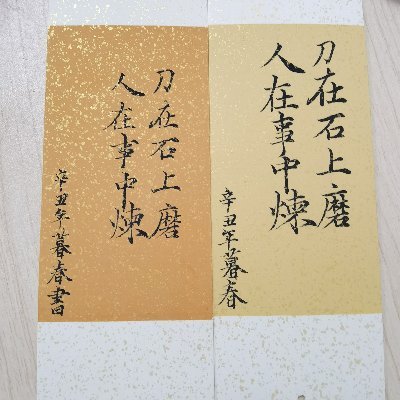 刀在石上磨
人在事中煉
辛丑年暮春
刀在石上磨
人在事中煉
辛丑年暮春書